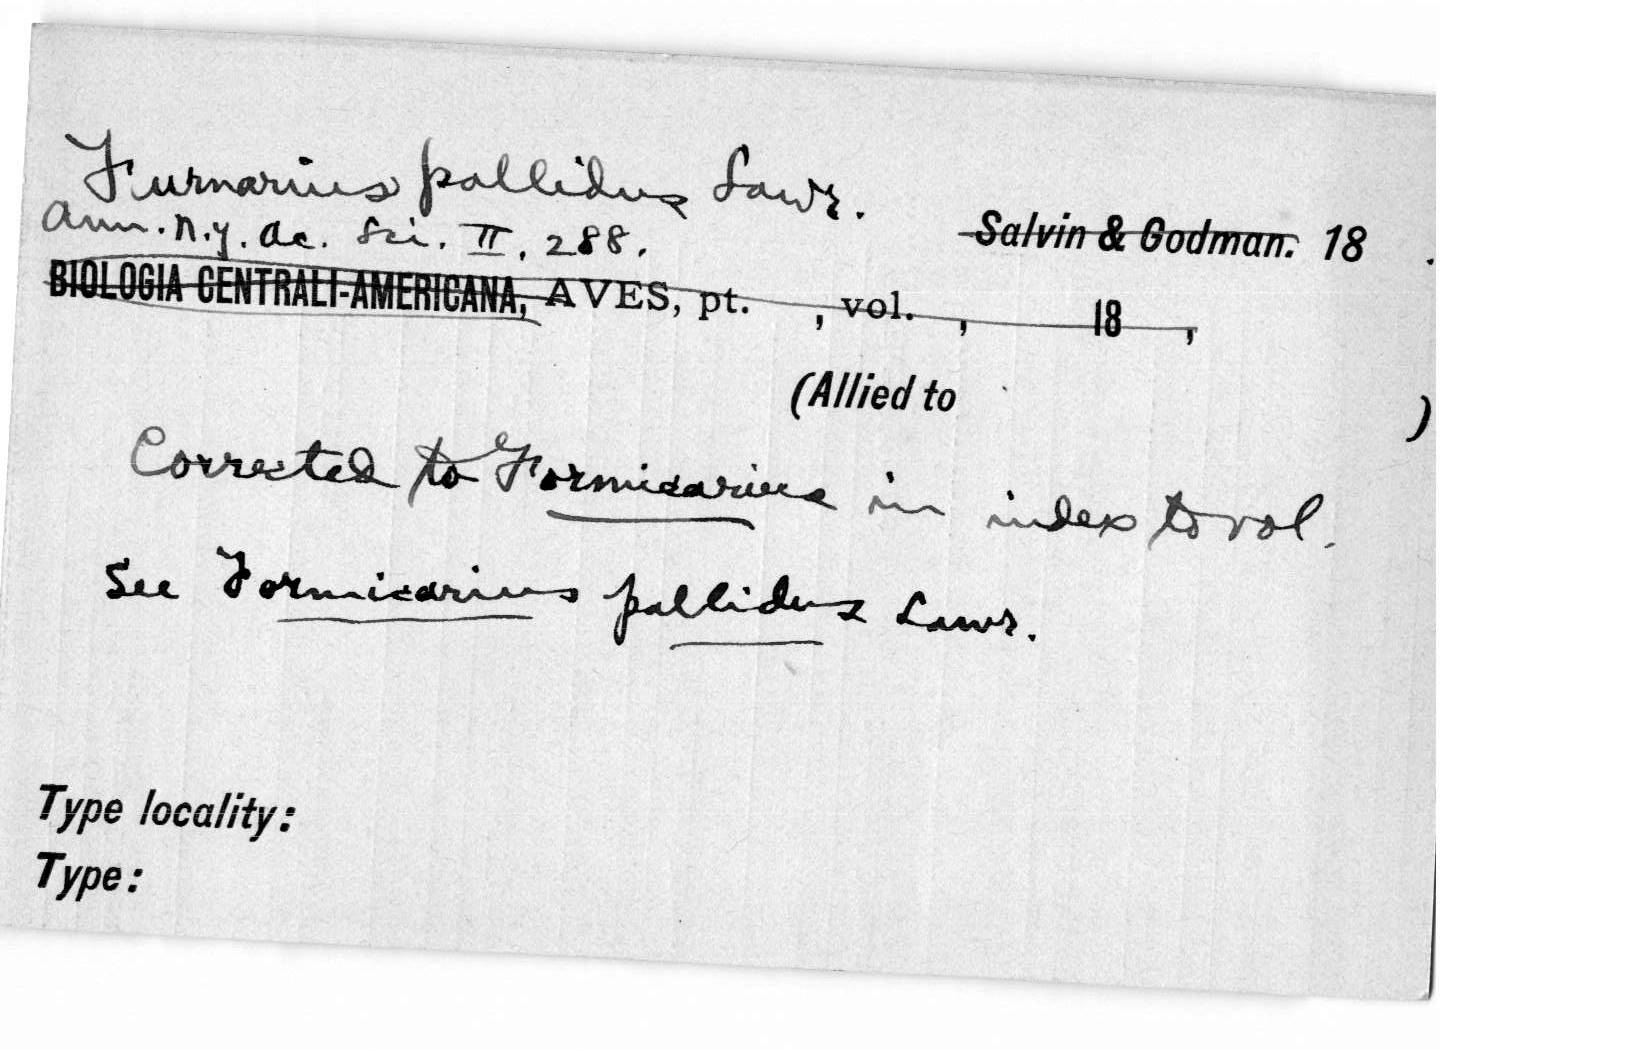 Furnarius pallidus Lawr.
Ann. N.Y. Ac. Sci. II, 288.
Salvin & Godman. 18 .
BIOLOGIA CENTRALI-AMERICANA, AVES, pt. , vol. , 18 ,
(Allied to )
Corrected to Formicarius in index to vol.
See Formicarius pallidus Lawr.
Type locality:
Type: